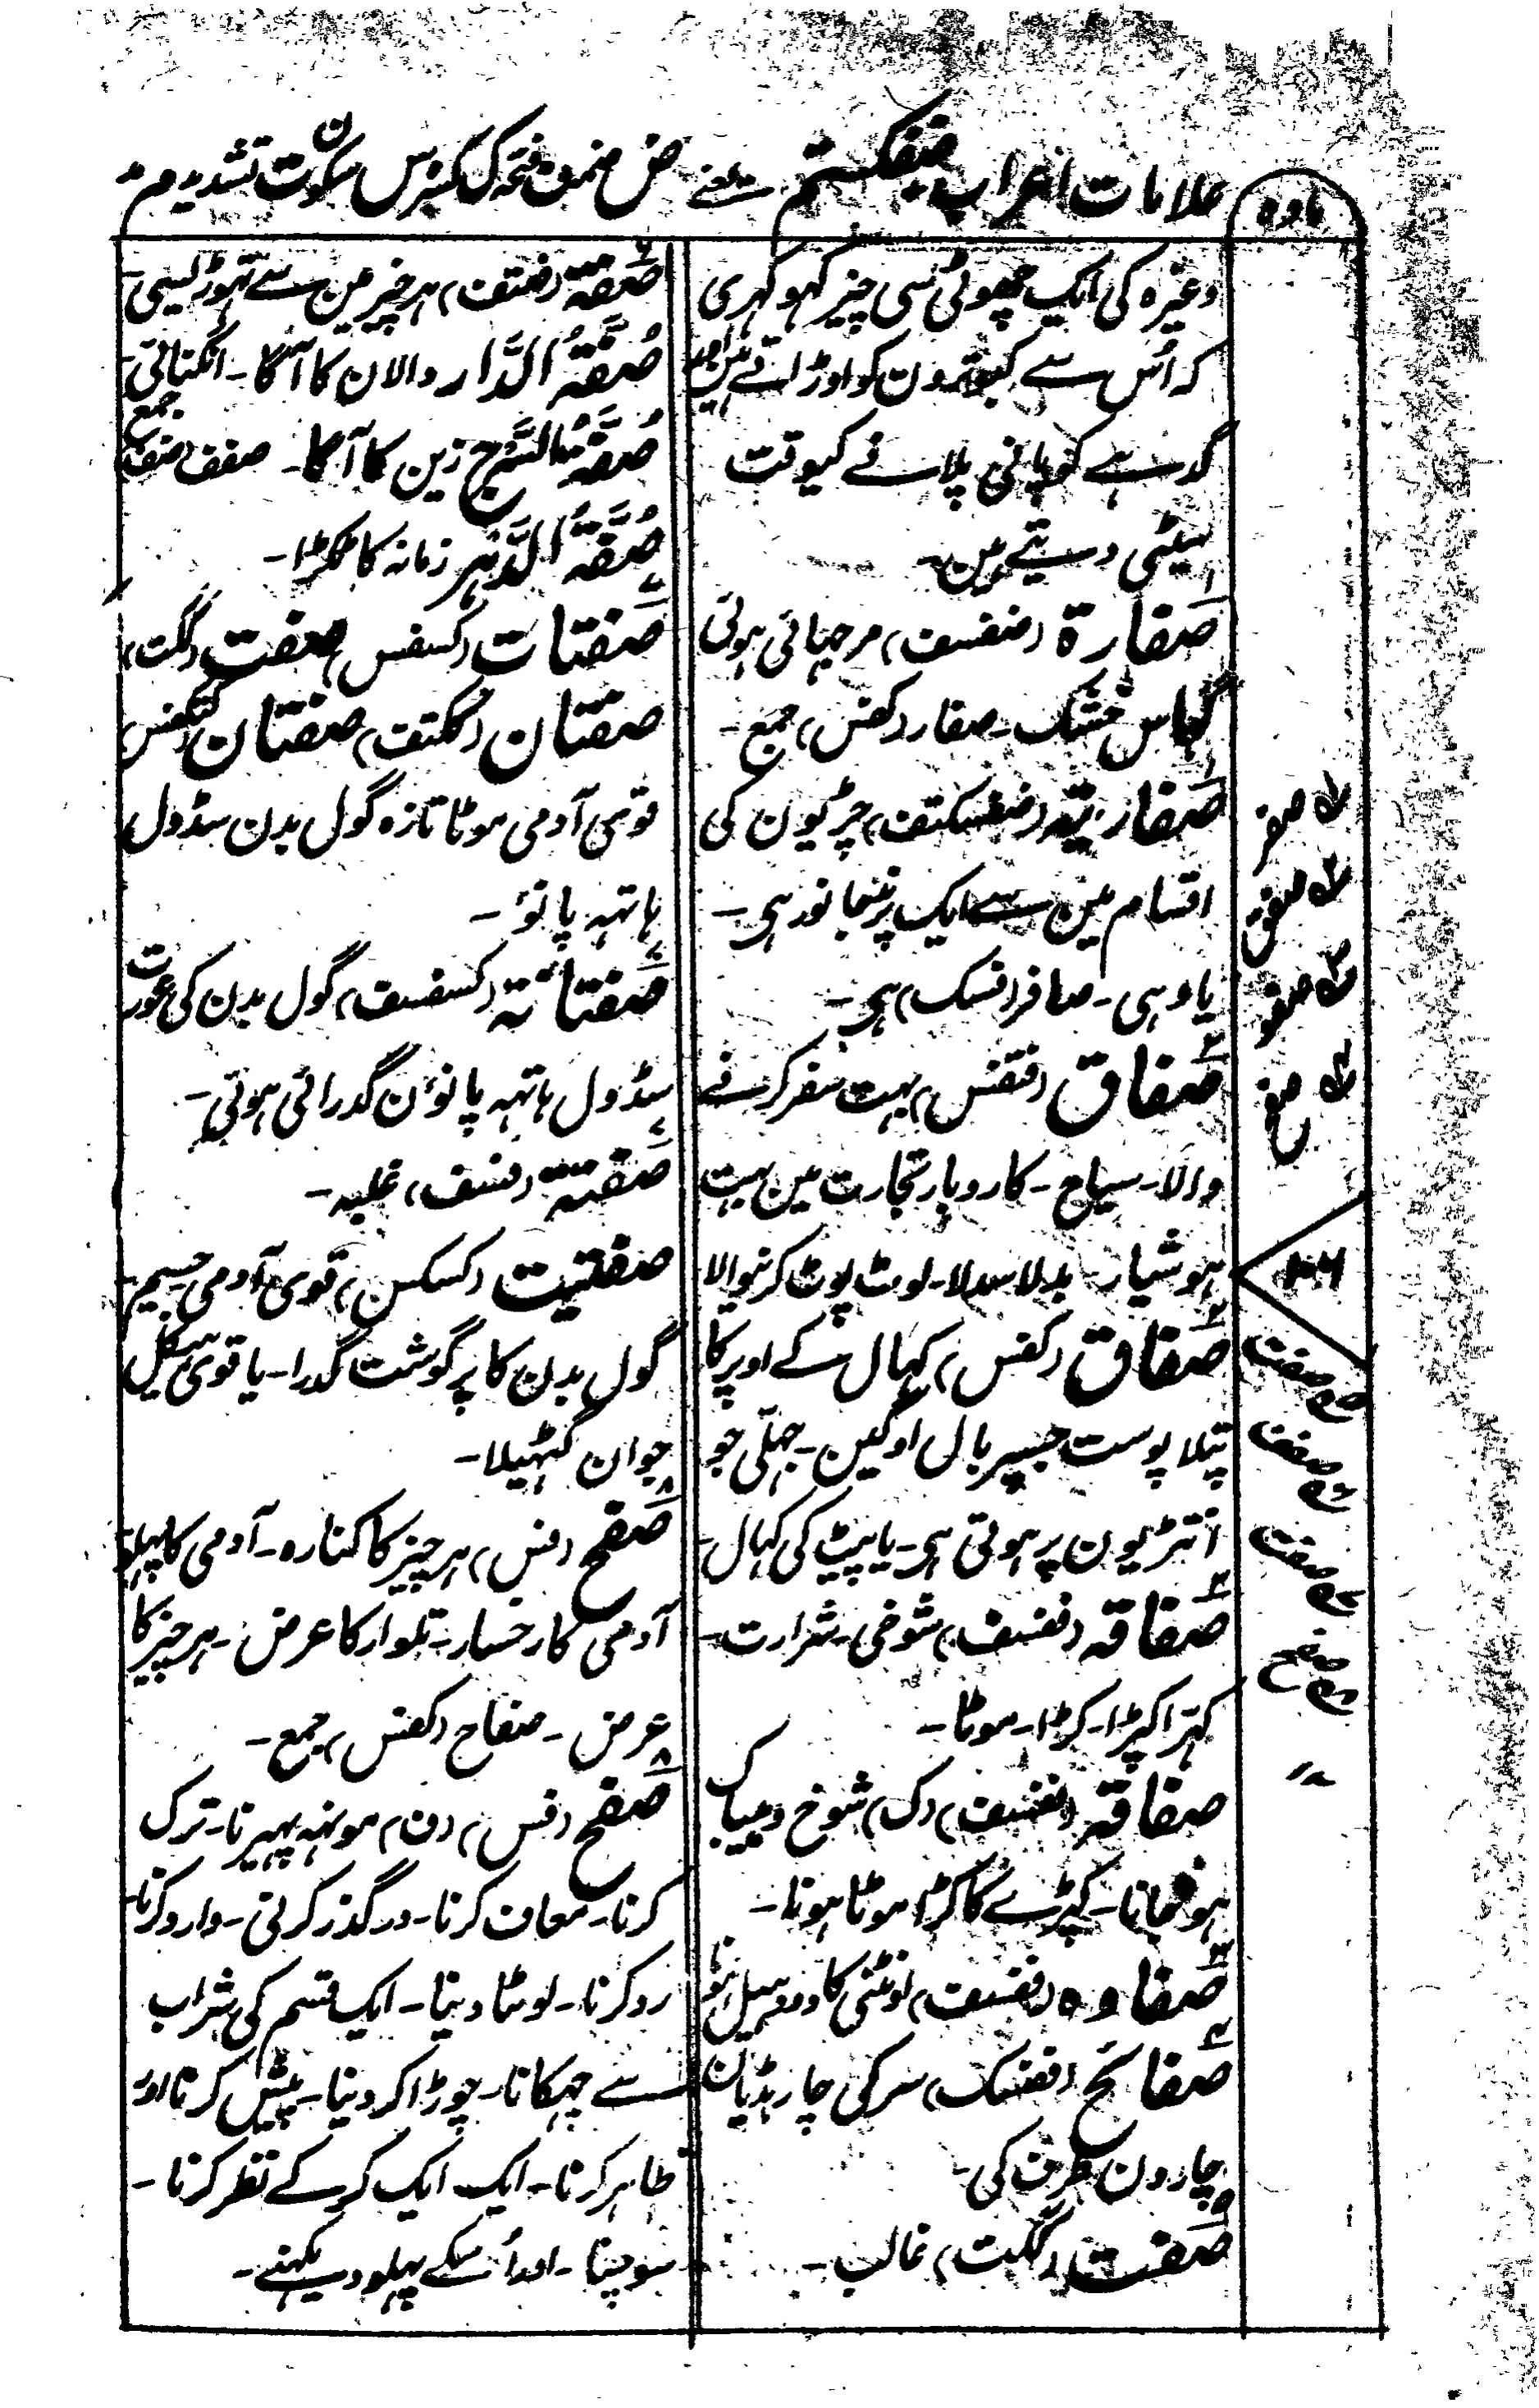 مادہ
علامات اعراب ضفکستم یعنے ض ضمہ ف فتحہ ک کسرہ س سکون ت تشدید م مد
وغیرہ کی ایک چھوٹی سی چیز کہوکہری
کہ اُس سے کبوترون کو اوڑاتے ہین اور
گدہے کو پانی پلانے کیوقت
سیٹی دیتے ہین۔
صفارة (ضفسف) مرجہائی ہوئی
گہاس خشک۔ صفار (کفس) جمع۔
صفاریتہ (ضفسکتف) چڑیون کی
اقسام مین سے ایک پرنیجانور ہی۔
یا وہی۔ صافر (فسک) ہی۔
صفاق (فتفس) بہت سفر کرنے
والا۔ سیاح۔ کاروبار تجارت مین بہت
ہوشیار۔ بدلا سدلا۔ لوٹ پوٹ کرنیوالا
صفاق (کفس) کہال کے اوپر کا
پتلا پوست جسپر بال اوگین۔ جہلّی جو
انتڑیون پر ہوتی ہی۔ یا پیٹ کی کہال۔
صفاقہ (ففسف) شوخی۔ شرارت۔
گہرا کپڑا۔ کڑا۔ موٹا۔
صفاقہ (ففسف) (ک) شوخ و بیباک
ہو جانا۔ کپڑے کا کڑا موٹا ہونا۔
صفاوہ (ففسف) اونٹنی کا دودہیل ہونا
صفائح (ففسک) سر کی چار ہڈیان
چارون طرف کی۔
صفت (کگت) غالب۔
صفقة (فتف) ہر چیز مین سے تہوڑیسی
صُفَّةُ الدَّار دالان کا آگا۔ انگنائی۔
صُفَّةُ السَّرج زین کا آگا۔ صفف (ضف) جمع
صُفَّةُ الدَّہر زمانہ کا ٹکڑا۔
صفتات (کسفس) صفت (کگت)
صفتان (ککتف) صفتان (کتکفس)
قوی آدمی موٹا تازہ گول بدن سڈول
ہاتہہ پانؤ۔
صفتانتہ (کسفسف) گول بدن کی عورت
سڈول ہاتہہ پانوٴن گدرائی ہوئی۔
صفتہ (فسف) غلبہ۔
صفتیت (کسکس) قوی آدمی جسیم۔
گول بدن کا پر گوشت گدرا۔ یا قوی ہیکل
جوان گٹہیلا۔
صفح (فس) ہر چیز کا کنارہ۔ آدمی کا پہلو
آدمی کا رخسار۔ تلوار کا عرض۔ ہر چیز کا
عرض۔ صفاح (کفس) جمع۔
صفح (فس) (ف) مونہہ پہیرنا۔ ترک
کرنا۔ معاف کرنا۔ درگذر کرنی۔ وارد کرنا
رد کرنا۔ لوٹا دینا۔ ایک قسم کی شراب
سے چہکانا۔ چوڑا کر دینا۔ پیش کرنا اور
ظاہر کرنا۔ ایک ایک کر کے نظر کرنا۔
سوچنا۔ اور اُسکے پہلو دیکہنے۔
صفر
صفق
صفو
صفح
صفت
صفت
صفت
صفح
〃